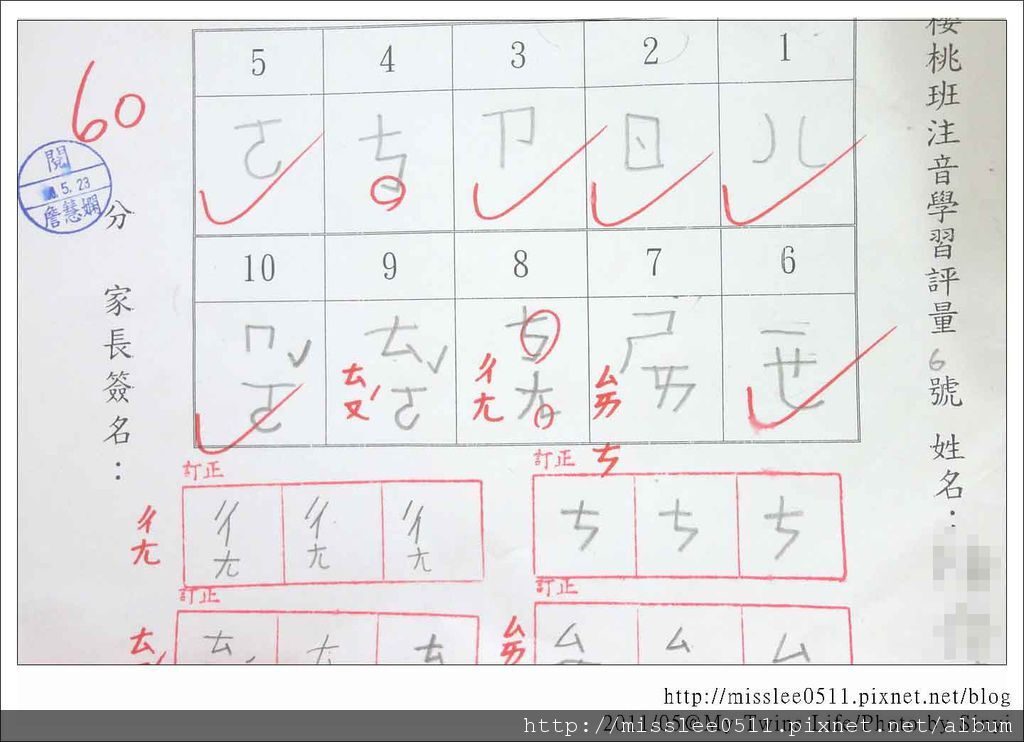 櫻桃班注音學習評量 6 號 姓名：
1
2
3
4
5
ㄦ
ㄖ
ㄗ
ㄘ
ㄜ
6
7
8
9
10
ㄧㄝ
ㄕㄞ
ㄙㄞ
ㄘㄤ
ㄔㄤ
ㄊˇㄜ
ㄊㄡˊ
ㄇˇㄛ
60
分
家長簽名：
閱
5.23
詹慧嫻
訂正
ㄘ
ㄘ
ㄘ
ㄘ
訂正
ㄔㄤ
ㄔㄤ
ㄔㄤ
ㄔㄤ
訂正
ㄙㄞ
ㄙ
ㄙ
ㄙ
訂正
ㄊ
ㄊ
ㄊ
ㄊ
http://misslee0511.pixnet.net/blog
2011/05©My Twins Life/Photo by Sinri
http://misslee0511.pixnet.net/album